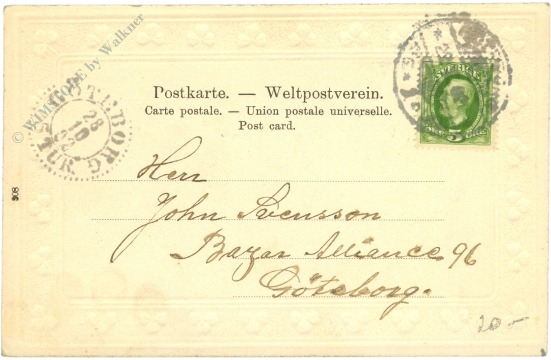 © WIMHOPE by Walkner
GÖTEBORG
28
10
TUR
SVERIGE
5
Postkarte. — Weltpostverein.
Carte postale. — Union postale universelle.
Post card.
308
Herr
John Svensson
Bazar Alliance 96
Göteborg.
20 —